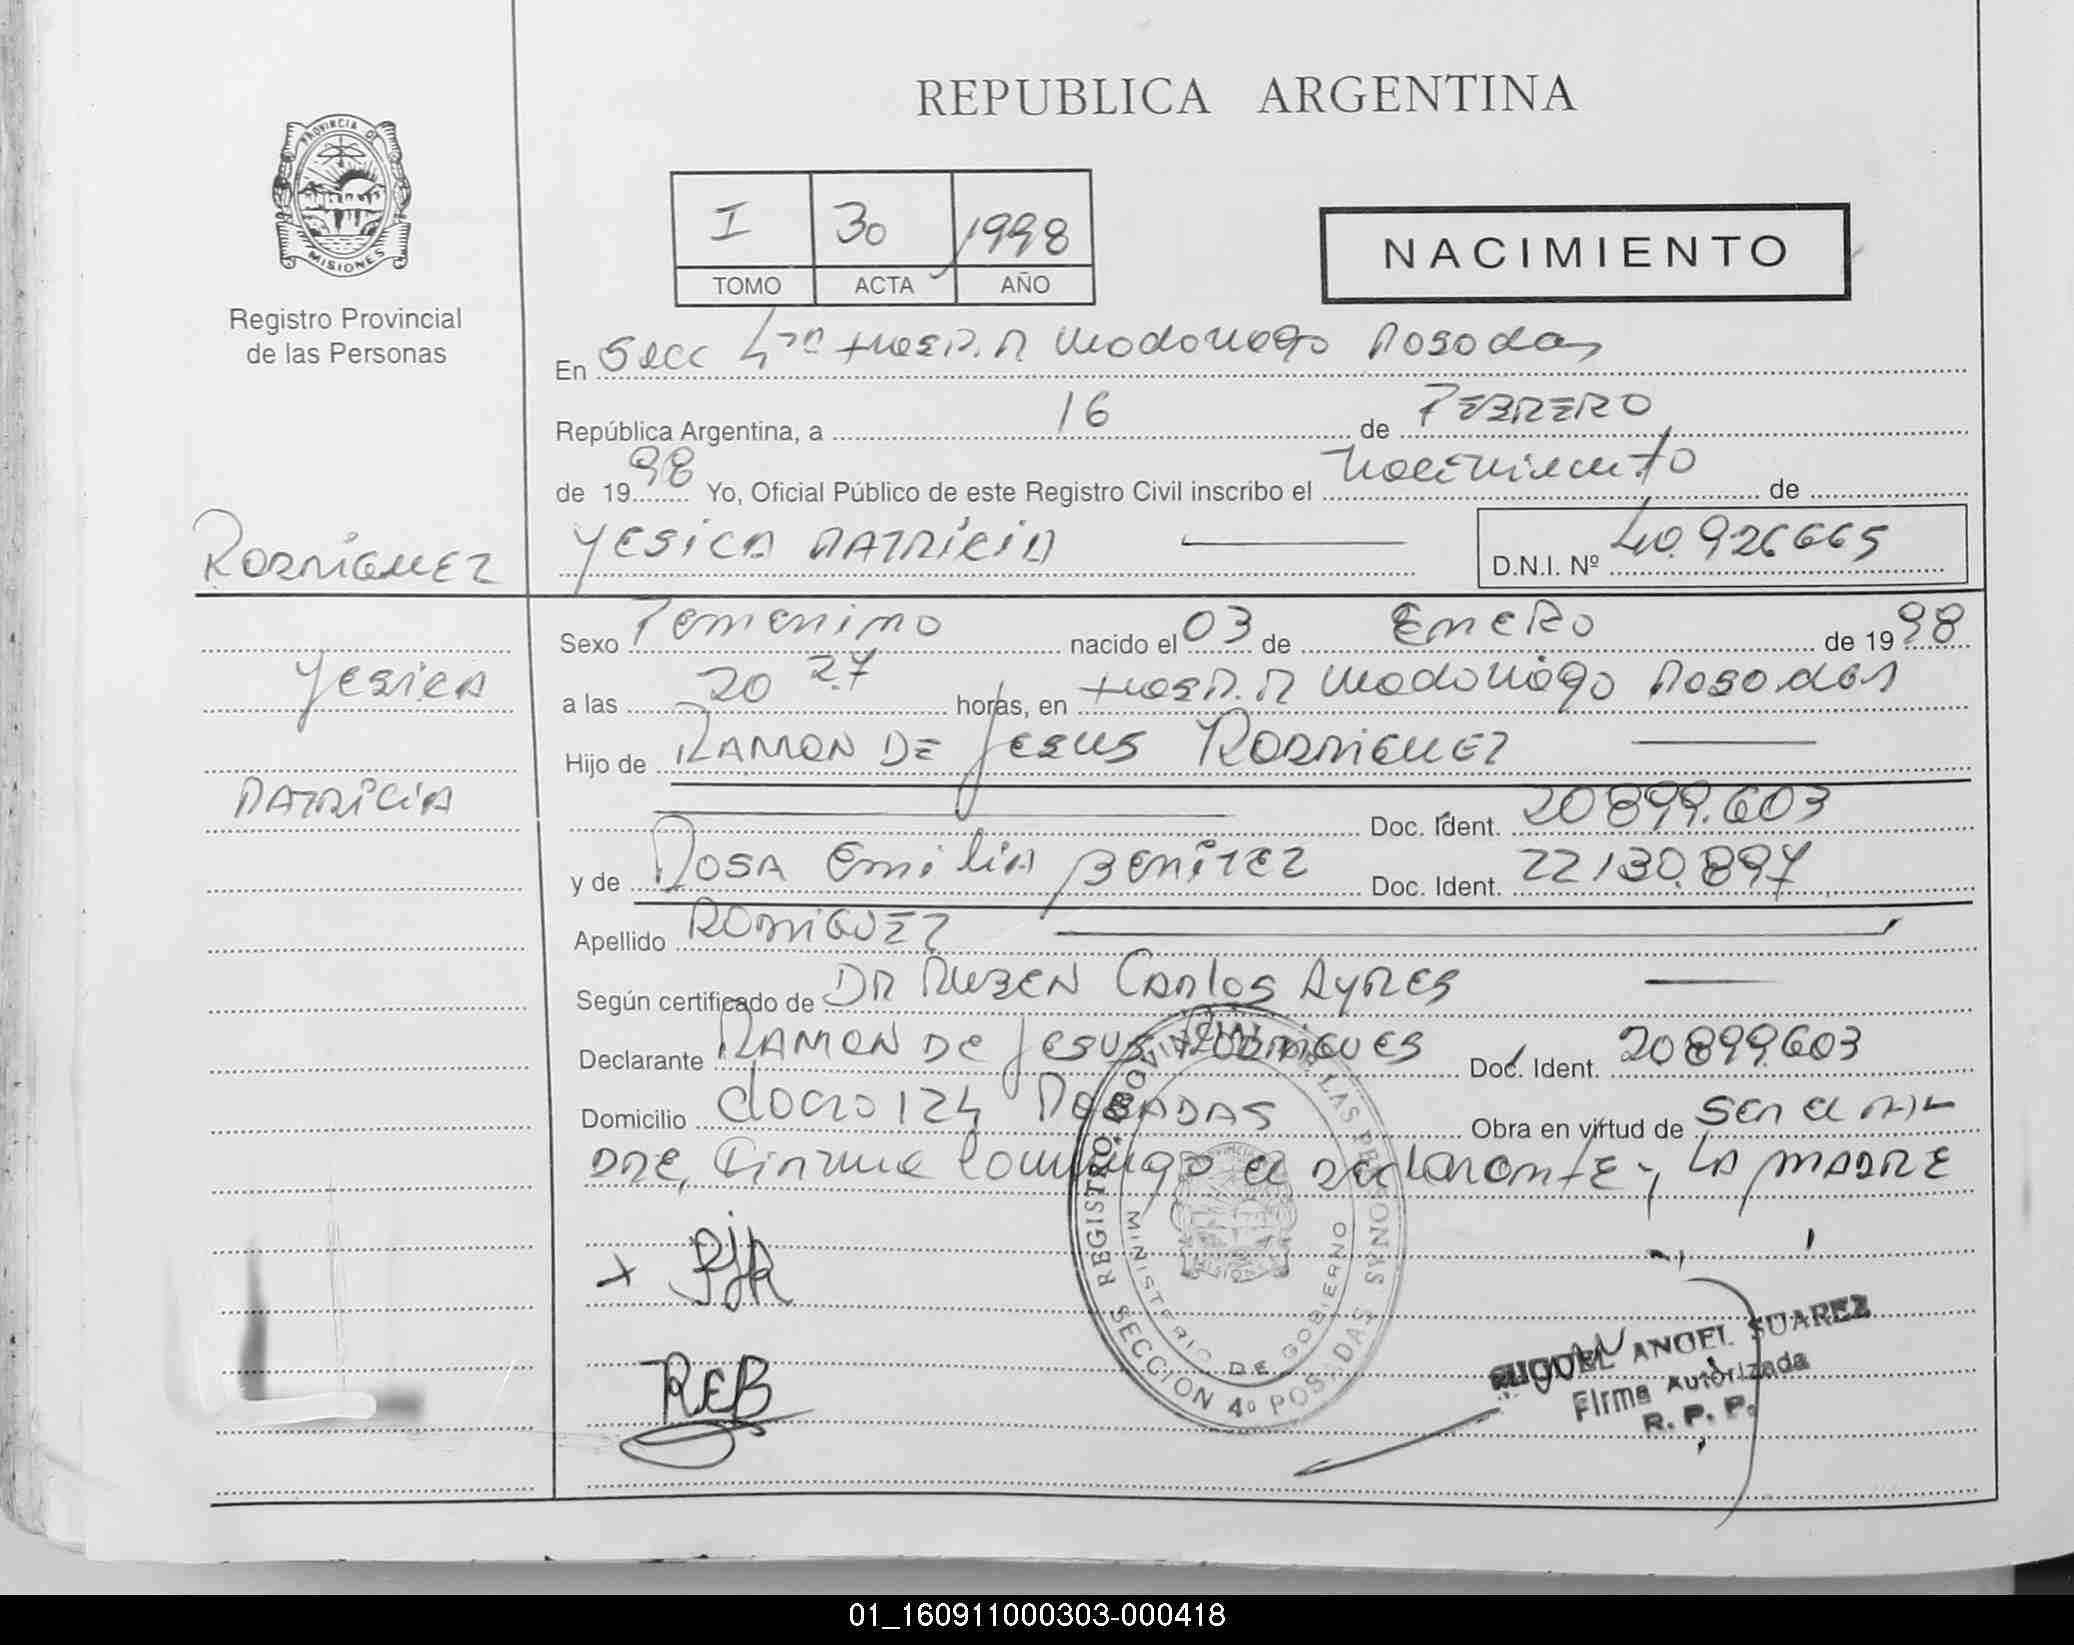 REPUBLICA ARGENTINA
PROVINCIA DE
MISIONES
Registro Provincial
de las Personas
I 30 1998
TOMO ACTA AÑO
NACIMIENTO
En Secc 4ta Hosp. R Madariaga Posadas
República Argentina, a 16 de FEBRERO
de 1998 Yo, Oficial Público de este Registro Civil inscribo el nacimiento de
RODRIGUEZ YESICA PATRICIA D.N.I. Nº 40.926665
Sexo Femenino nacido el 03 de Enero de 1998
Yesica
a las 20 27 horas, en Hosp. R Madariaga Posadas
Hijo de RAMON DE Jesus RODRIGUEZ
PATRICIA
Doc. Ident. 20899.603
y de ROSA Emilia BENITEZ Doc. Ident. 22130.897
Apellido RODRIGUEZ
Según certificado de DR RUBEN Carlos AyRES
Declarante RAMON De Jesus Rodrigues Doc. Ident. 20899603
Domicilio 124 POSADAS Obra en virtud de Ser el PA-
DRE, Firma Conmigo el declarante y LA MADRE
x RJR
REB
REGISTRO PROVINCIAL DE LAS PERSONAS
MINISTERIO DE GOBIERNO
SECCION 4º POSADAS
MIGUEL ANGEL SUAREZ
Firma Autorizada
R. P. P.
01_160911000303-000418